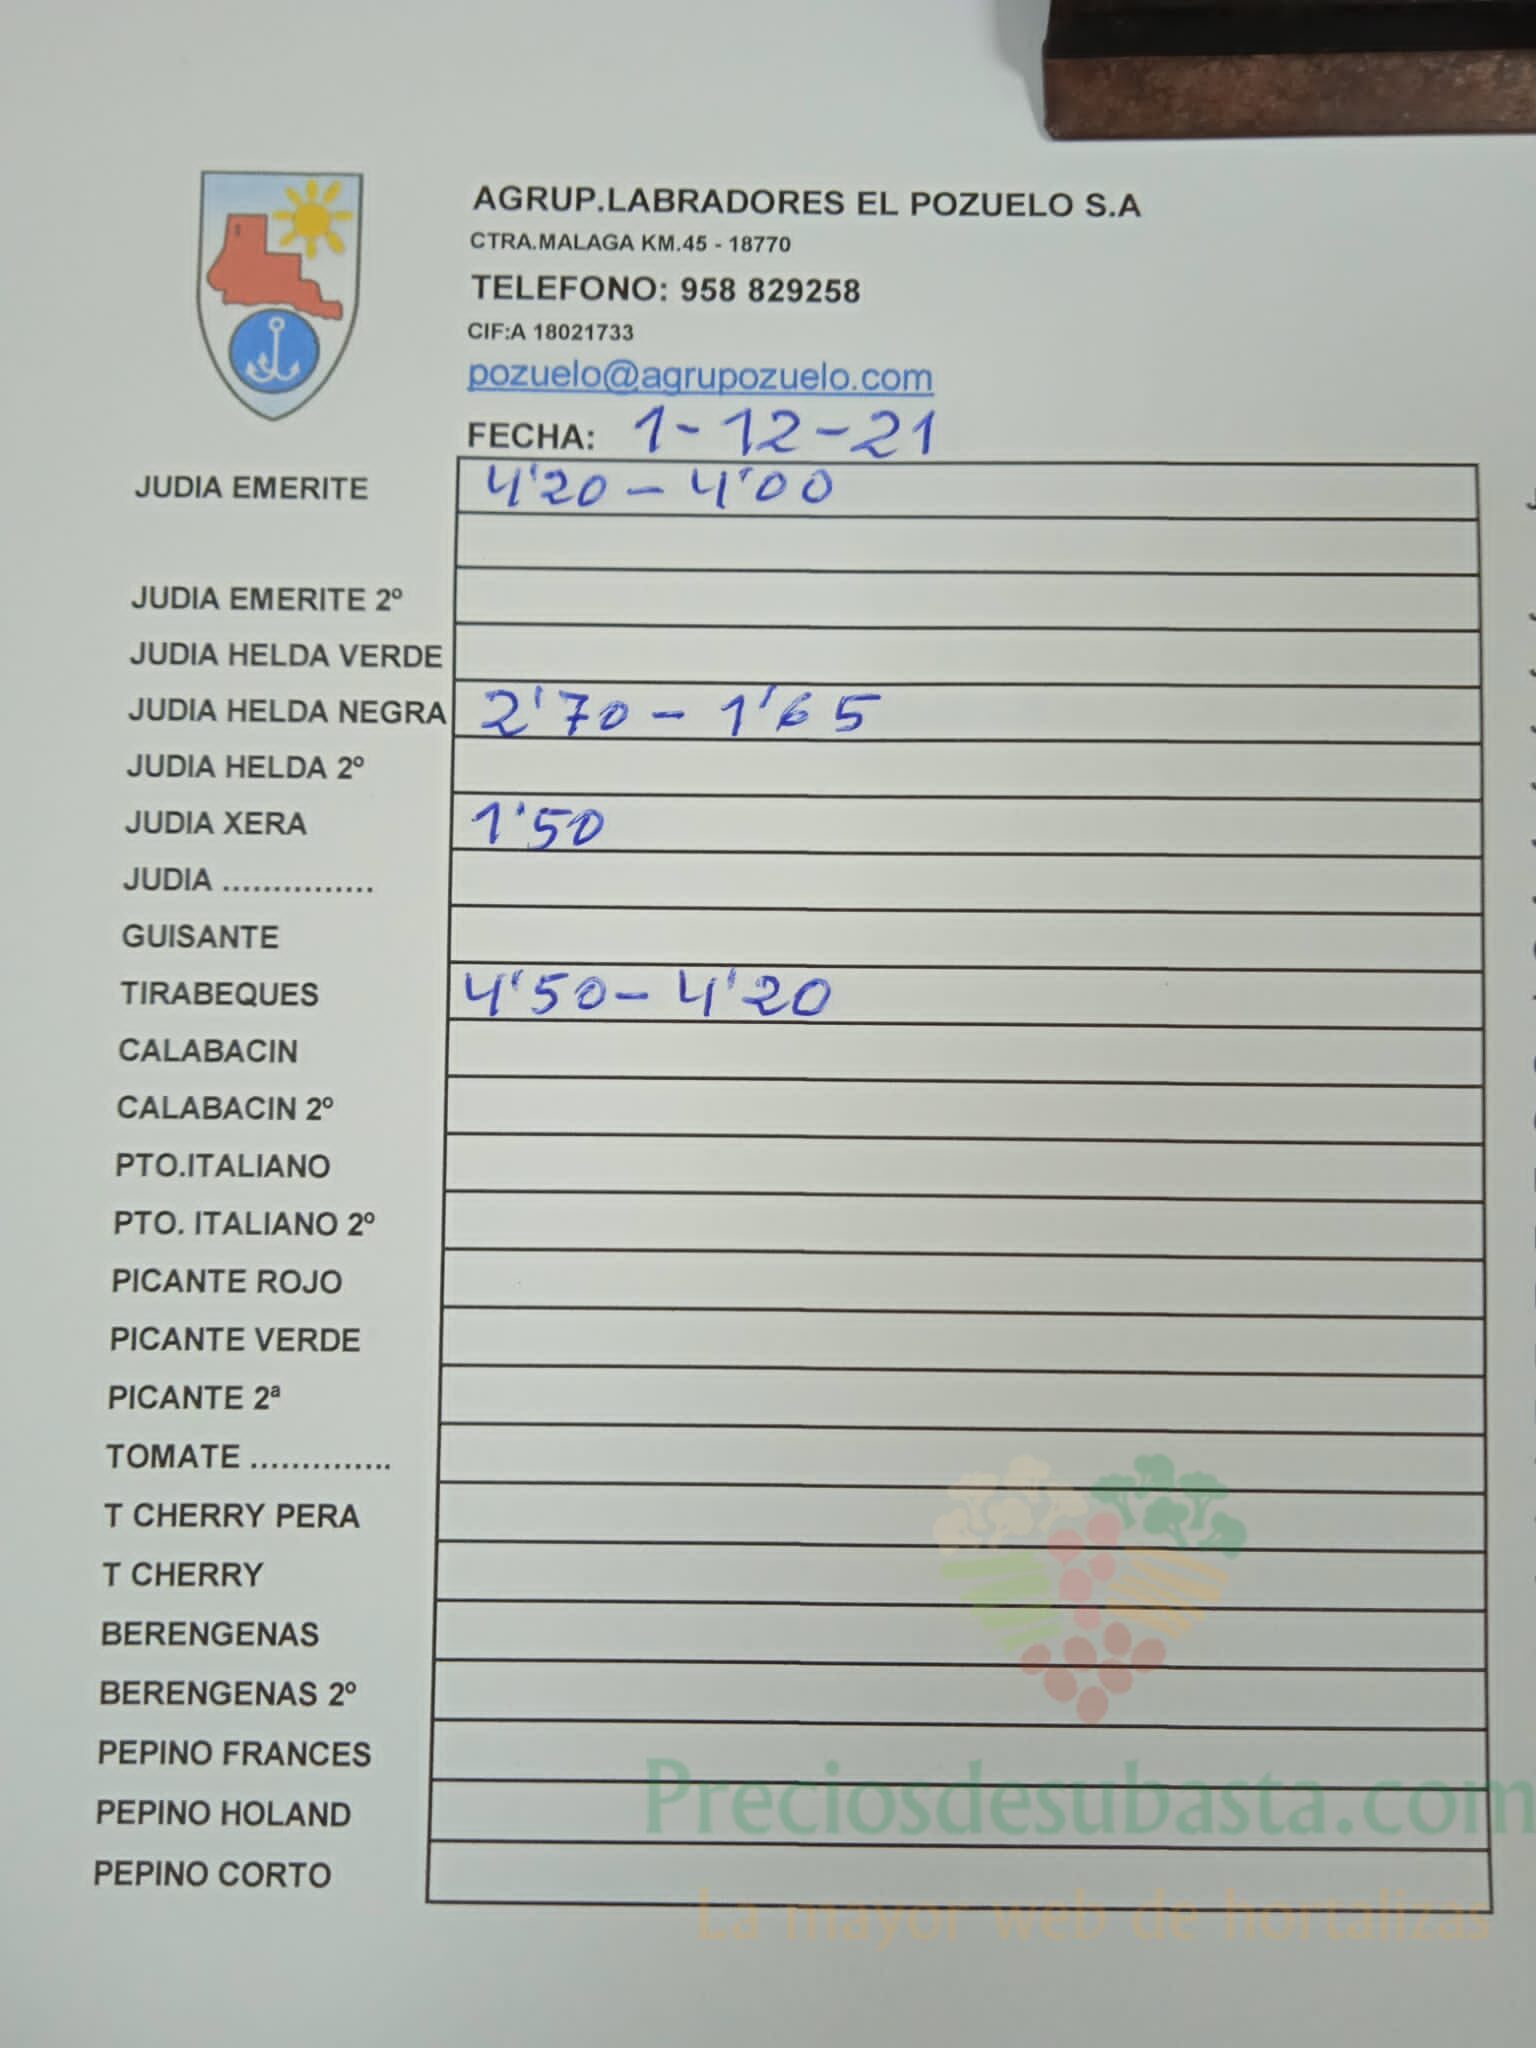 AGRUP.LABRADORES EL POZUELO S.A
CTRA.MALAGA KM.45 - 18770
TELEFONO: 958 829258
CIF:A 18021733
pozuelo@agrupozuelo.com
FECHA: 1-12-21
JUDIA EMERITE 4'20 - 4'00
JUDIA EMERITE 2º
JUDIA HELDA VERDE
JUDIA HELDA NEGRA 2'70 - 1'65
JUDIA HELDA 2º
JUDIA XERA 1'50
JUDIA ...............
GUISANTE
TIRABEQUES 4'50 - 4'20
CALABACIN
CALABACIN 2º
PTO.ITALIANO
PTO. ITALIANO 2º
PICANTE ROJO
PICANTE VERDE
PICANTE 2ª
TOMATE ..............
T CHERRY PERA
T CHERRY
BERENGENAS
BERENGENAS 2º
PEPINO FRANCES
PEPINO HOLAND
PEPINO CORTO
Preciosdesubasta.com
La mayor web de hortalizas